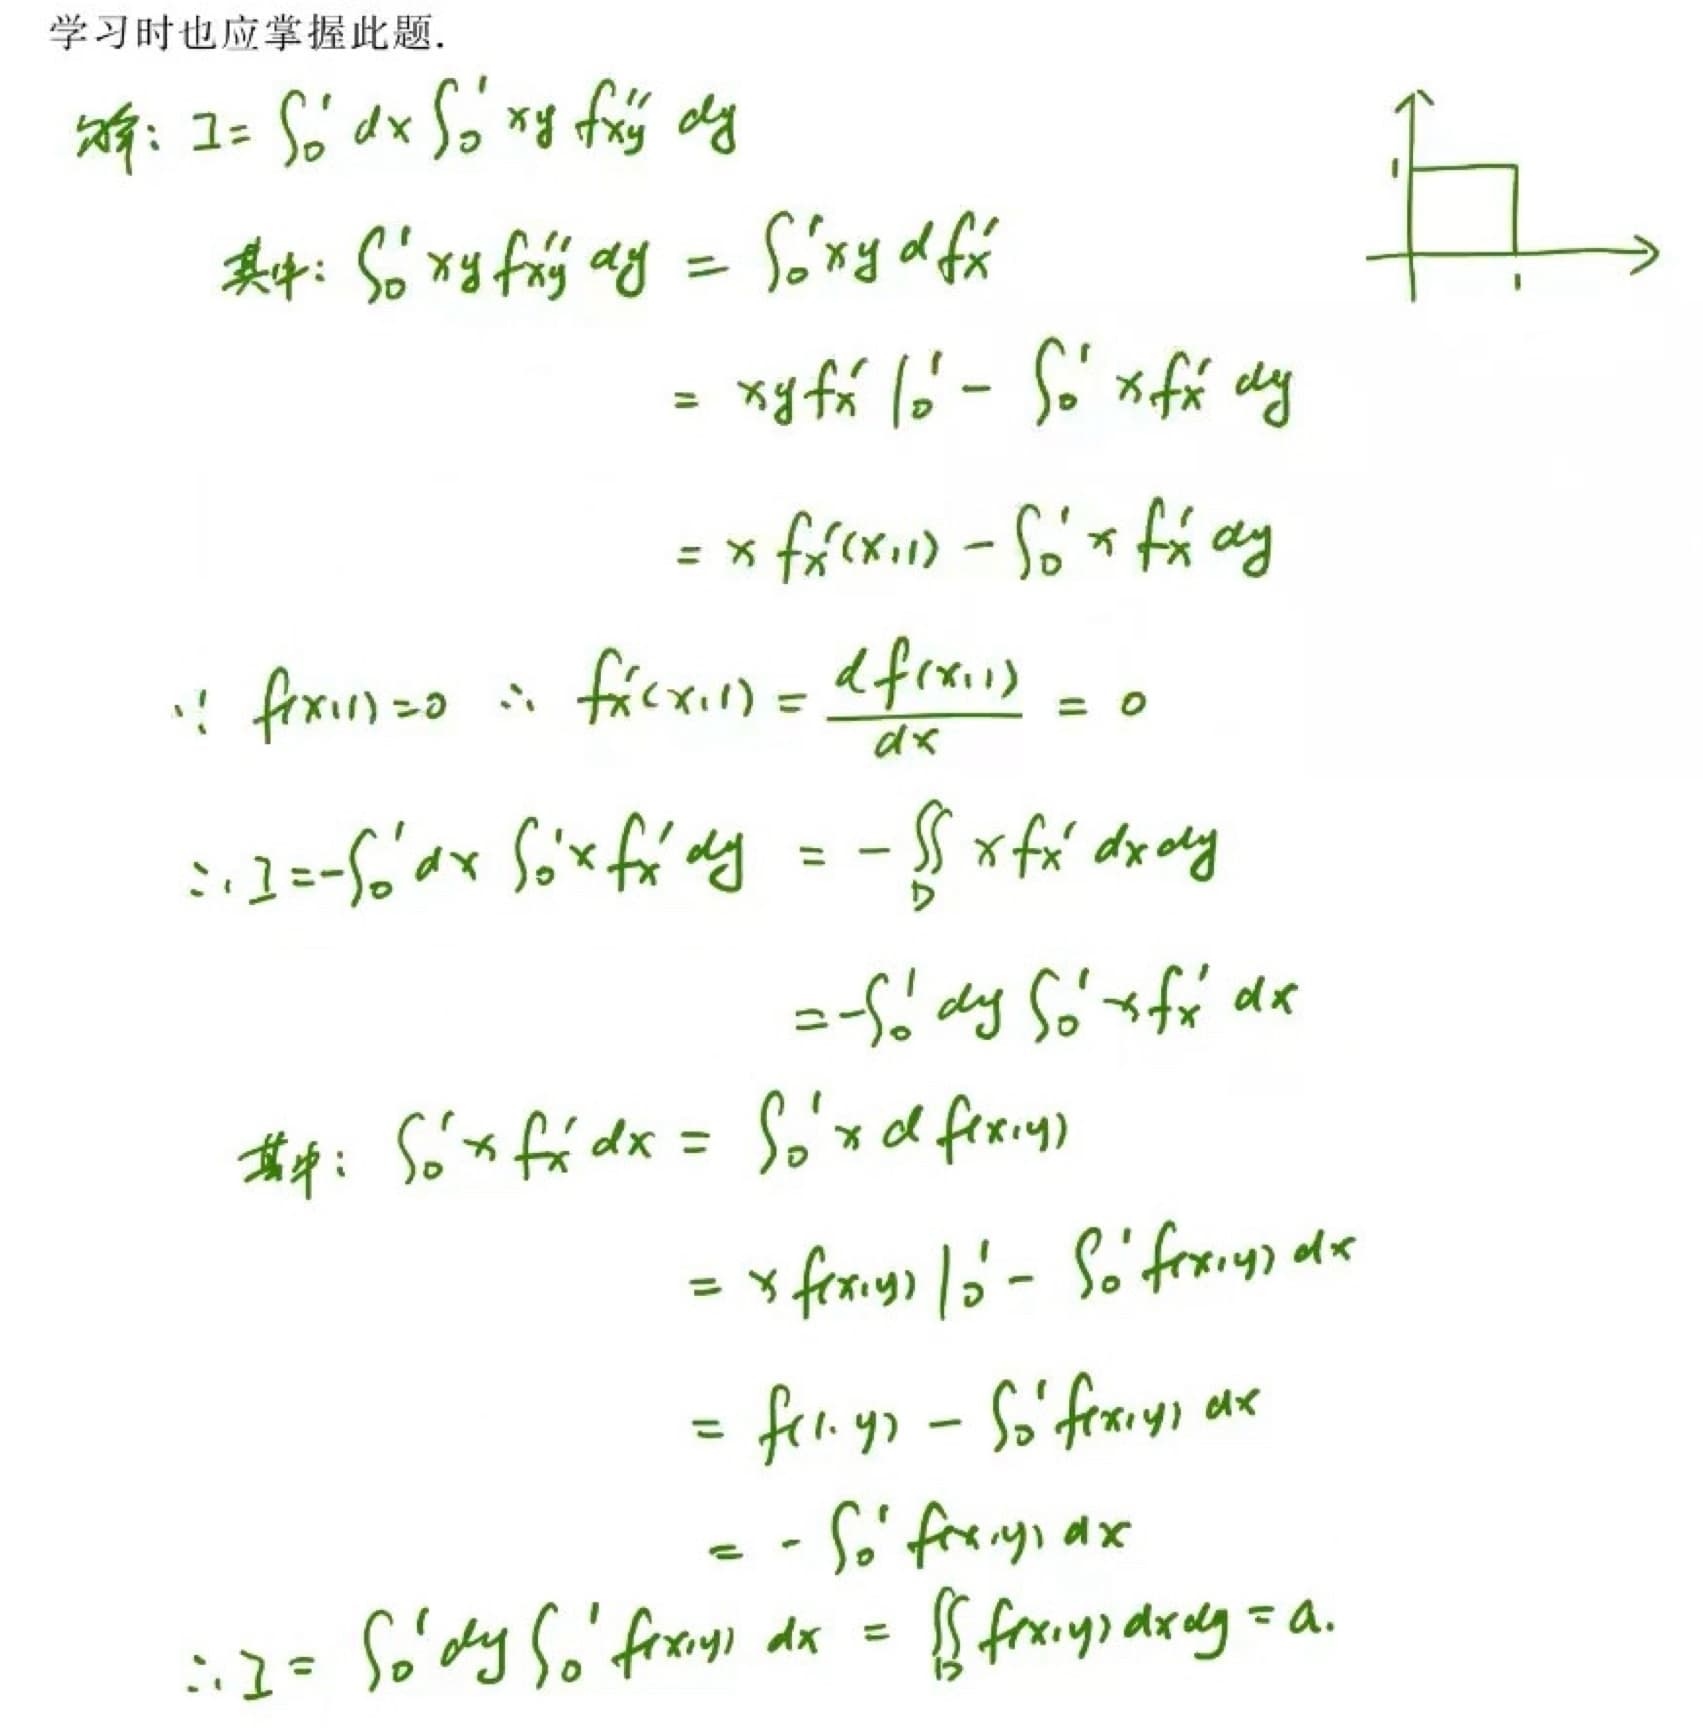 学习时也应掌握此题.
解: I = ∫₀¹ dx ∫₀¹ xy f''xy dy
其中: ∫₀¹ xy f''xy dy = ∫₀¹ xy d f'x
= xy f'x |₀¹ - ∫₀¹ x f'x dy
= x f'x(x,1) - ∫₀¹ x f'x dy
∵ f(x,1) = 0 ∴ f'x(x,1) = df(x,1)/dx = 0
∴ I = -∫₀¹ dx ∫₀¹ x f'x dy = -∬D x f'x dxdy
= -∫₀¹ dy ∫₀¹ x f'x dx
其中: ∫₀¹ x f'x dx = ∫₀¹ x d f(x,y)
= x f(x,y) |₀¹ - ∫₀¹ f(x,y) dx
= f(1,y) - ∫₀¹ f(x,y) dx
= -∫₀¹ f(x,y) dx
∴ I = ∫₀¹ dy ∫₀¹ f(x,y) dx = ∬D f(x,y) dxdy = a.
1
1